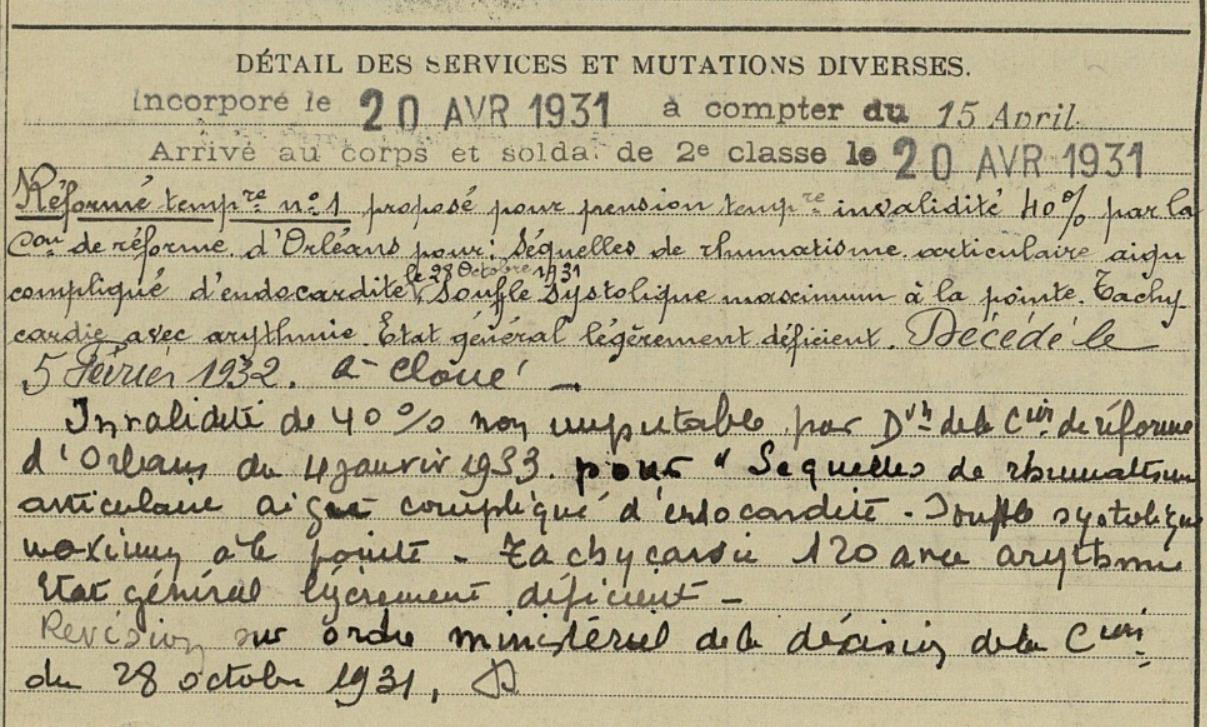 DÉTAIL DES SERVICES ET MUTATIONS DIVERSES.
Incorporé le 20 AVR 1931 à compter du 15 Avril.
Arrivé au corps et solda. de 2e classe le 20 AVR 1931
Réformé tempre no 1 proposé pour pension tempre invalidité 40% par la
Con de réforme d'Orléans pour: Séquelles de rhumatisme articulaire aigu
le 28 Octobre 1931
compliqué d'endocardite, Souffle Systolique maximum à la pointe. Tachy-
cardie avec arythmie. État général légèrement déficient. Décédé le
5 Février 1932. à Cloué –
Invalidité de 40% non imputable par Don de la Cion de réforme
d'Orléans du 4 janvier 1933. pour "Sequelles de rhumatisme
articulaire aigu compliqué d'endocardite - Souffle systolique
maximum à la pointe - Tachycardie 120 avec arythmie
Etat général légèrement déficient -
Revision sur ordre ministériel de la décision de la Cion
du 28 octobre 1931,